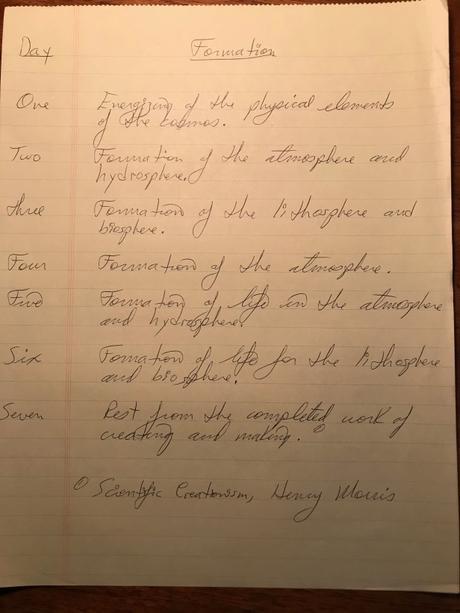 Day Formation
One Energizing of the physical elements
of the cosmos.
Two Formation of the atmosphere and
hydrosphere.
Three Formation of the lithosphere and
biosphere.
Four Formation of the atmosphere.
Five Formation of life in the atmosphere
and hydrosphere.
Six Formation of life for the lithosphere
and biosphere.
Seven Rest from the completed work of
creating and making. ①
① Scientific Creationism, Henry Morris